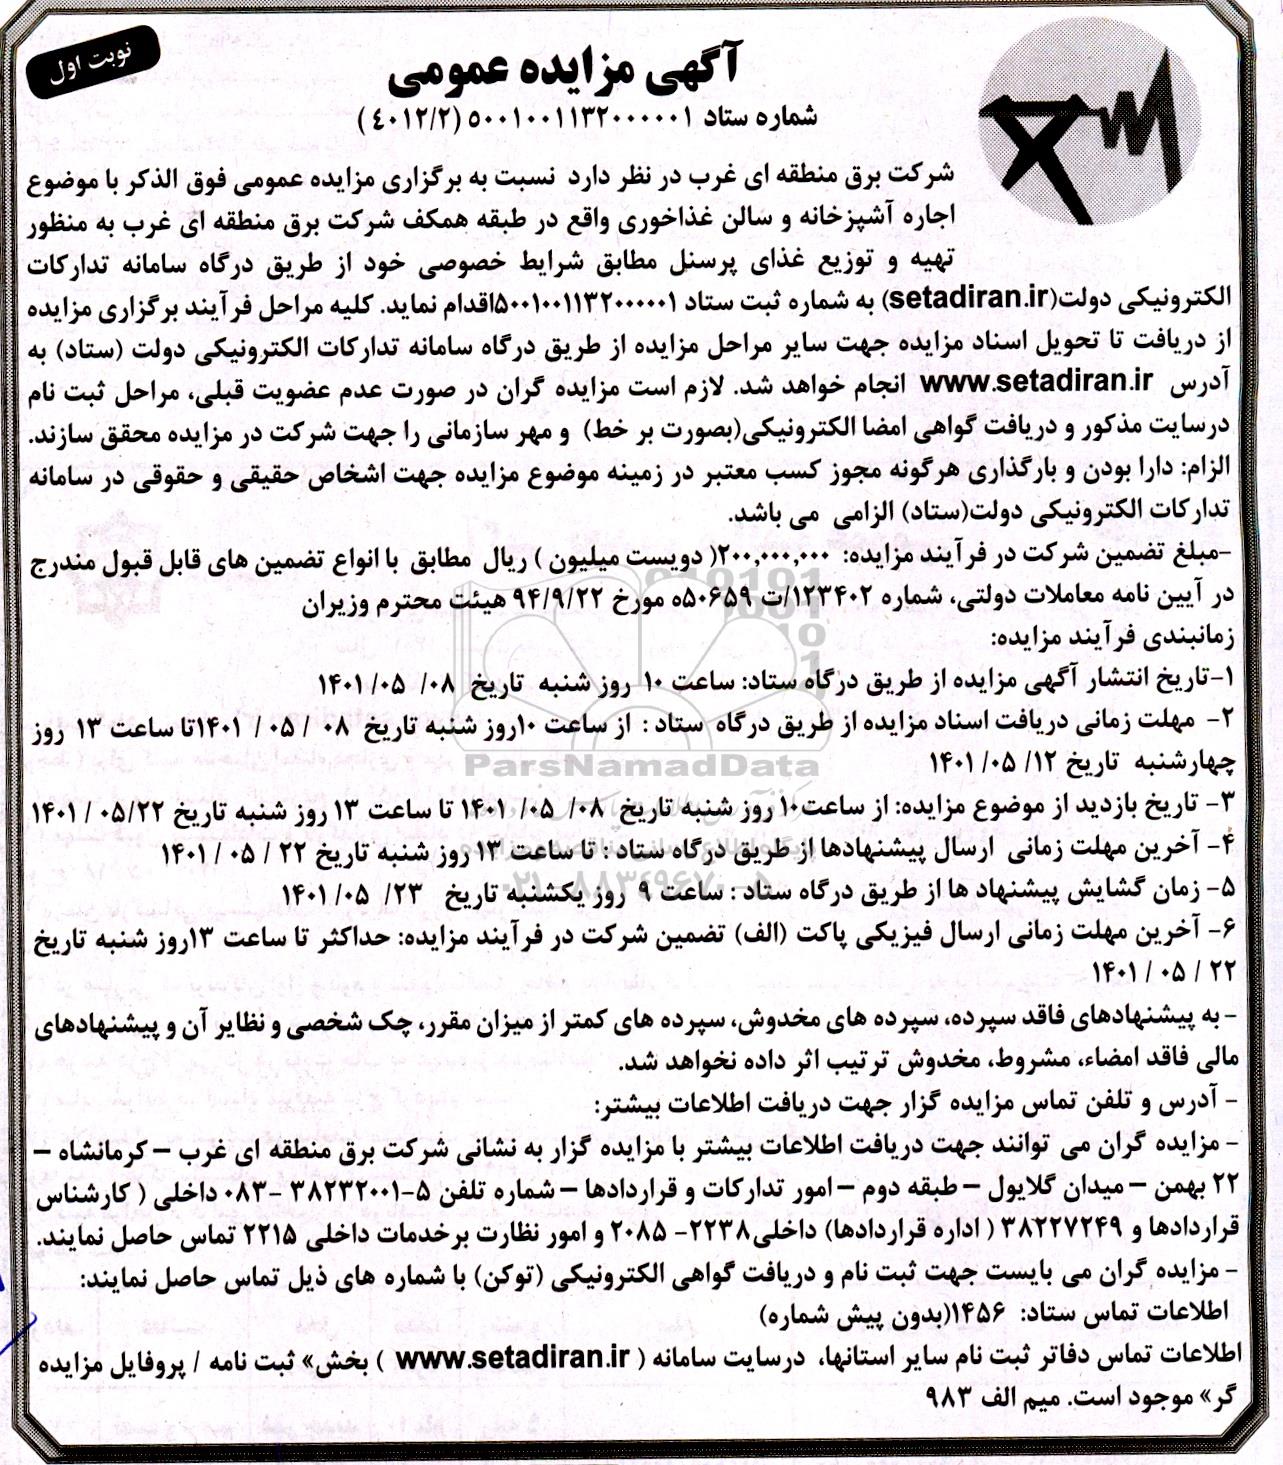 نوبت اول
آگهی مزایده عمومی
شماره ستاد ۵۰۰۱۰۰۱۱۳۲۰۰۰۰۰۱ (۴۰۱۲/۲)
شرکت برق منطقه ای غرب در نظر دارد نسبت به برگزاری مزایده عمومی فوق الذکر با موضوع
اجاره آشپزخانه و سالن غذاخوری واقع در طبقه همکف شرکت برق منطقه ای غرب به منظور
تهیه و توزیع غذای پرسنل مطابق شرایط خصوصی خود از طریق درگاه سامانه تدارکات
الکترونیکی دولت(setadiran.ir) به شماره ثبت ستاد ۵۰۰۱۰۰۱۱۳۲۰۰۰۰۰۱اقدام نماید. کلیه مراحل فرآیند برگزاری مزایده
از دریافت تا تحویل اسناد مزایده جهت سایر مراحل مزایده از طریق درگاه سامانه تدارکات الکترونیکی دولت (ستاد) به
آدرس www.setadiran.ir انجام خواهد شد. لازم است مزایده گران در صورت عدم عضویت قبلی، مراحل ثبت نام
درسایت مذکور و دریافت گواهی امضا الکترونیکی(بصورت بر خط) و مهر سازمانی را جهت شرکت در مزایده محقق سازند.
الزام: دارا بودن و بارگذاری هرگونه مجوز کسب معتبر در زمینه موضوع مزایده جهت اشخاص حقیقی و حقوقی در سامانه
تدارکات الکترونیکی دولت(ستاد) الزامی می باشد.
-مبلغ تضمین شرکت در فرآیند مزایده: ۲۰۰,۰۰۰,۰۰۰( دویست میلیون ) ریال مطابق با انواع تضمین های قابل قبول مندرج
در آیین نامه معاملات دولتی، شماره ۱۲۳۴۰۲/ت ۵۰۶۵۹ه مورخ ۹۴/۹/۲۲ هیئت محترم وزیران
زمانبندی فرآیند مزایده:
۱-تاریخ انتشار آگهی مزایده از طریق درگاه ستاد: ساعت ۱۰ روز شنبه تاریخ ۰۸/ ۰۵/ ۱۴۰۱
۲- مهلت زمانی دریافت اسناد مزایده از طریق درگاه ستاد : از ساعت ۱۰روز شنبه تاریخ ۰۸ / ۰۵ / ۱۴۰۱تا ساعت ۱۳ روز
چهارشنبه تاریخ ۱۲/ ۰۵/ ۱۴۰۱
۳- تاریخ بازدید از موضوع مزایده: از ساعت۱۰ روز شنبه تاریخ ۰۸/ ۰۵/ ۱۴۰۱ تا ساعت ۱۳ روز شنبه تاریخ ۰۵/۲۲ / ۱۴۰۱
۴- آخرین مهلت زمانی ارسال پیشنهادها از طریق درگاه ستاد : تا ساعت ۱۳ روز شنبه تاریخ ۲۲ / ۰۵ / ۱۴۰۱
۵- زمان گشایش پیشنهاد ها از طریق درگاه ستاد : ساعت ۹ روز یکشنبه تاریخ ۲۳/ ۰۵/ ۱۴۰۱
۶- آخرین مهلت زمانی ارسال فیزیکی پاکت (الف) تضمین شرکت در فرآیند مزایده: حداکثر تا ساعت ۱۳روز شنبه تاریخ
۲۲ / ۰۵ / ۱۴۰۱
- به پیشنهادهای فاقد سپرده، سپرده های مخدوش، سپرده های کمتر از میزان مقرر، چک شخصی و نظایر آن و پیشنهادهای
مالی فاقد امضاء، مشروط، مخدوش ترتیب اثر داده نخواهد شد.
- آدرس و تلفن تماس مزایده گزار جهت دریافت اطلاعات بیشتر:
- مزایده گران می توانند جهت دریافت اطلاعات بیشتر با مزایده گزار به نشانی شرکت برق منطقه ای غرب – کرمانشاه –
۲۲ بهمن – میدان گلایول – طبقه دوم – امور تدارکات و قراردادها – شماره تلفن ۵-۳۸۲۳۲۰۰۱ -۰۸۳ داخلی ( کارشناس
قراردادها و ۳۸۲۲۷۲۴۹ ( اداره قراردادها) داخلی۲۲۳۸- ۲۰۸۵ و امور نظارت برخدمات داخلی ۲۲۱۵ تماس حاصل نمایند.
- مزایده گران می بایست جهت ثبت نام و دریافت گواهی الکترونیکی (توکن) با شماره های ذیل تماس حاصل نمایند:
اطلاعات تماس ستاد: ۱۴۵۶(بدون پیش شماره)
اطلاعات تماس دفاتر ثبت نام سایر استانها، درسایت سامانه ( www.setadiran.ir ) بخش» ثبت نامه / پروفایل مزایده
گر» موجود است. میم الف ۹۸۳
ParsNamadData